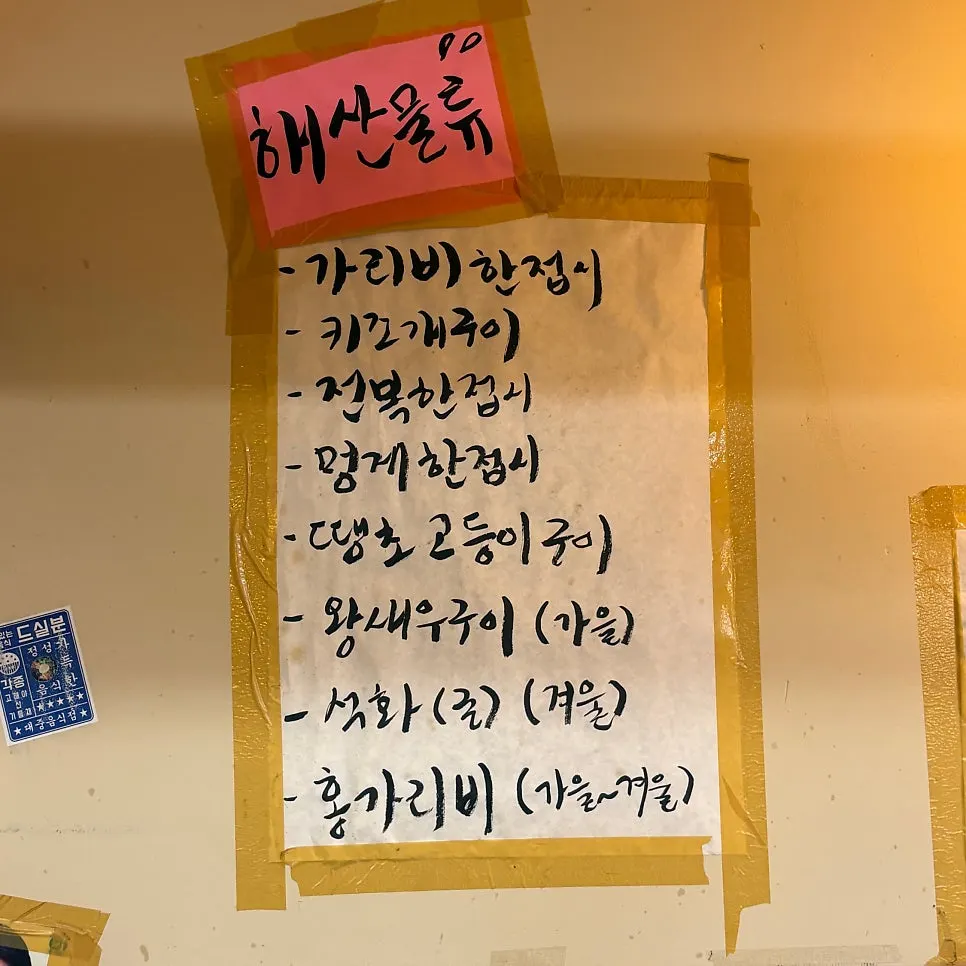 해산물류
- 가리비 한접시
- 키조개구이
- 전복한접시
- 멍게 한접시
- 땡초 고등어 구이
- 왕새우구이 (가을)
- 석화 (굴) (겨울)
- 홍가리비 (가을~겨울)
드실분
정성가득
각종
음식한
★★★★★
★대중음식점★